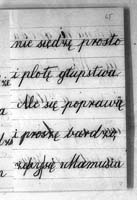 65
nie siedzę prosto
i plotę głupstwa
Ale się poprawię
i proszę bardzo
Mamusia